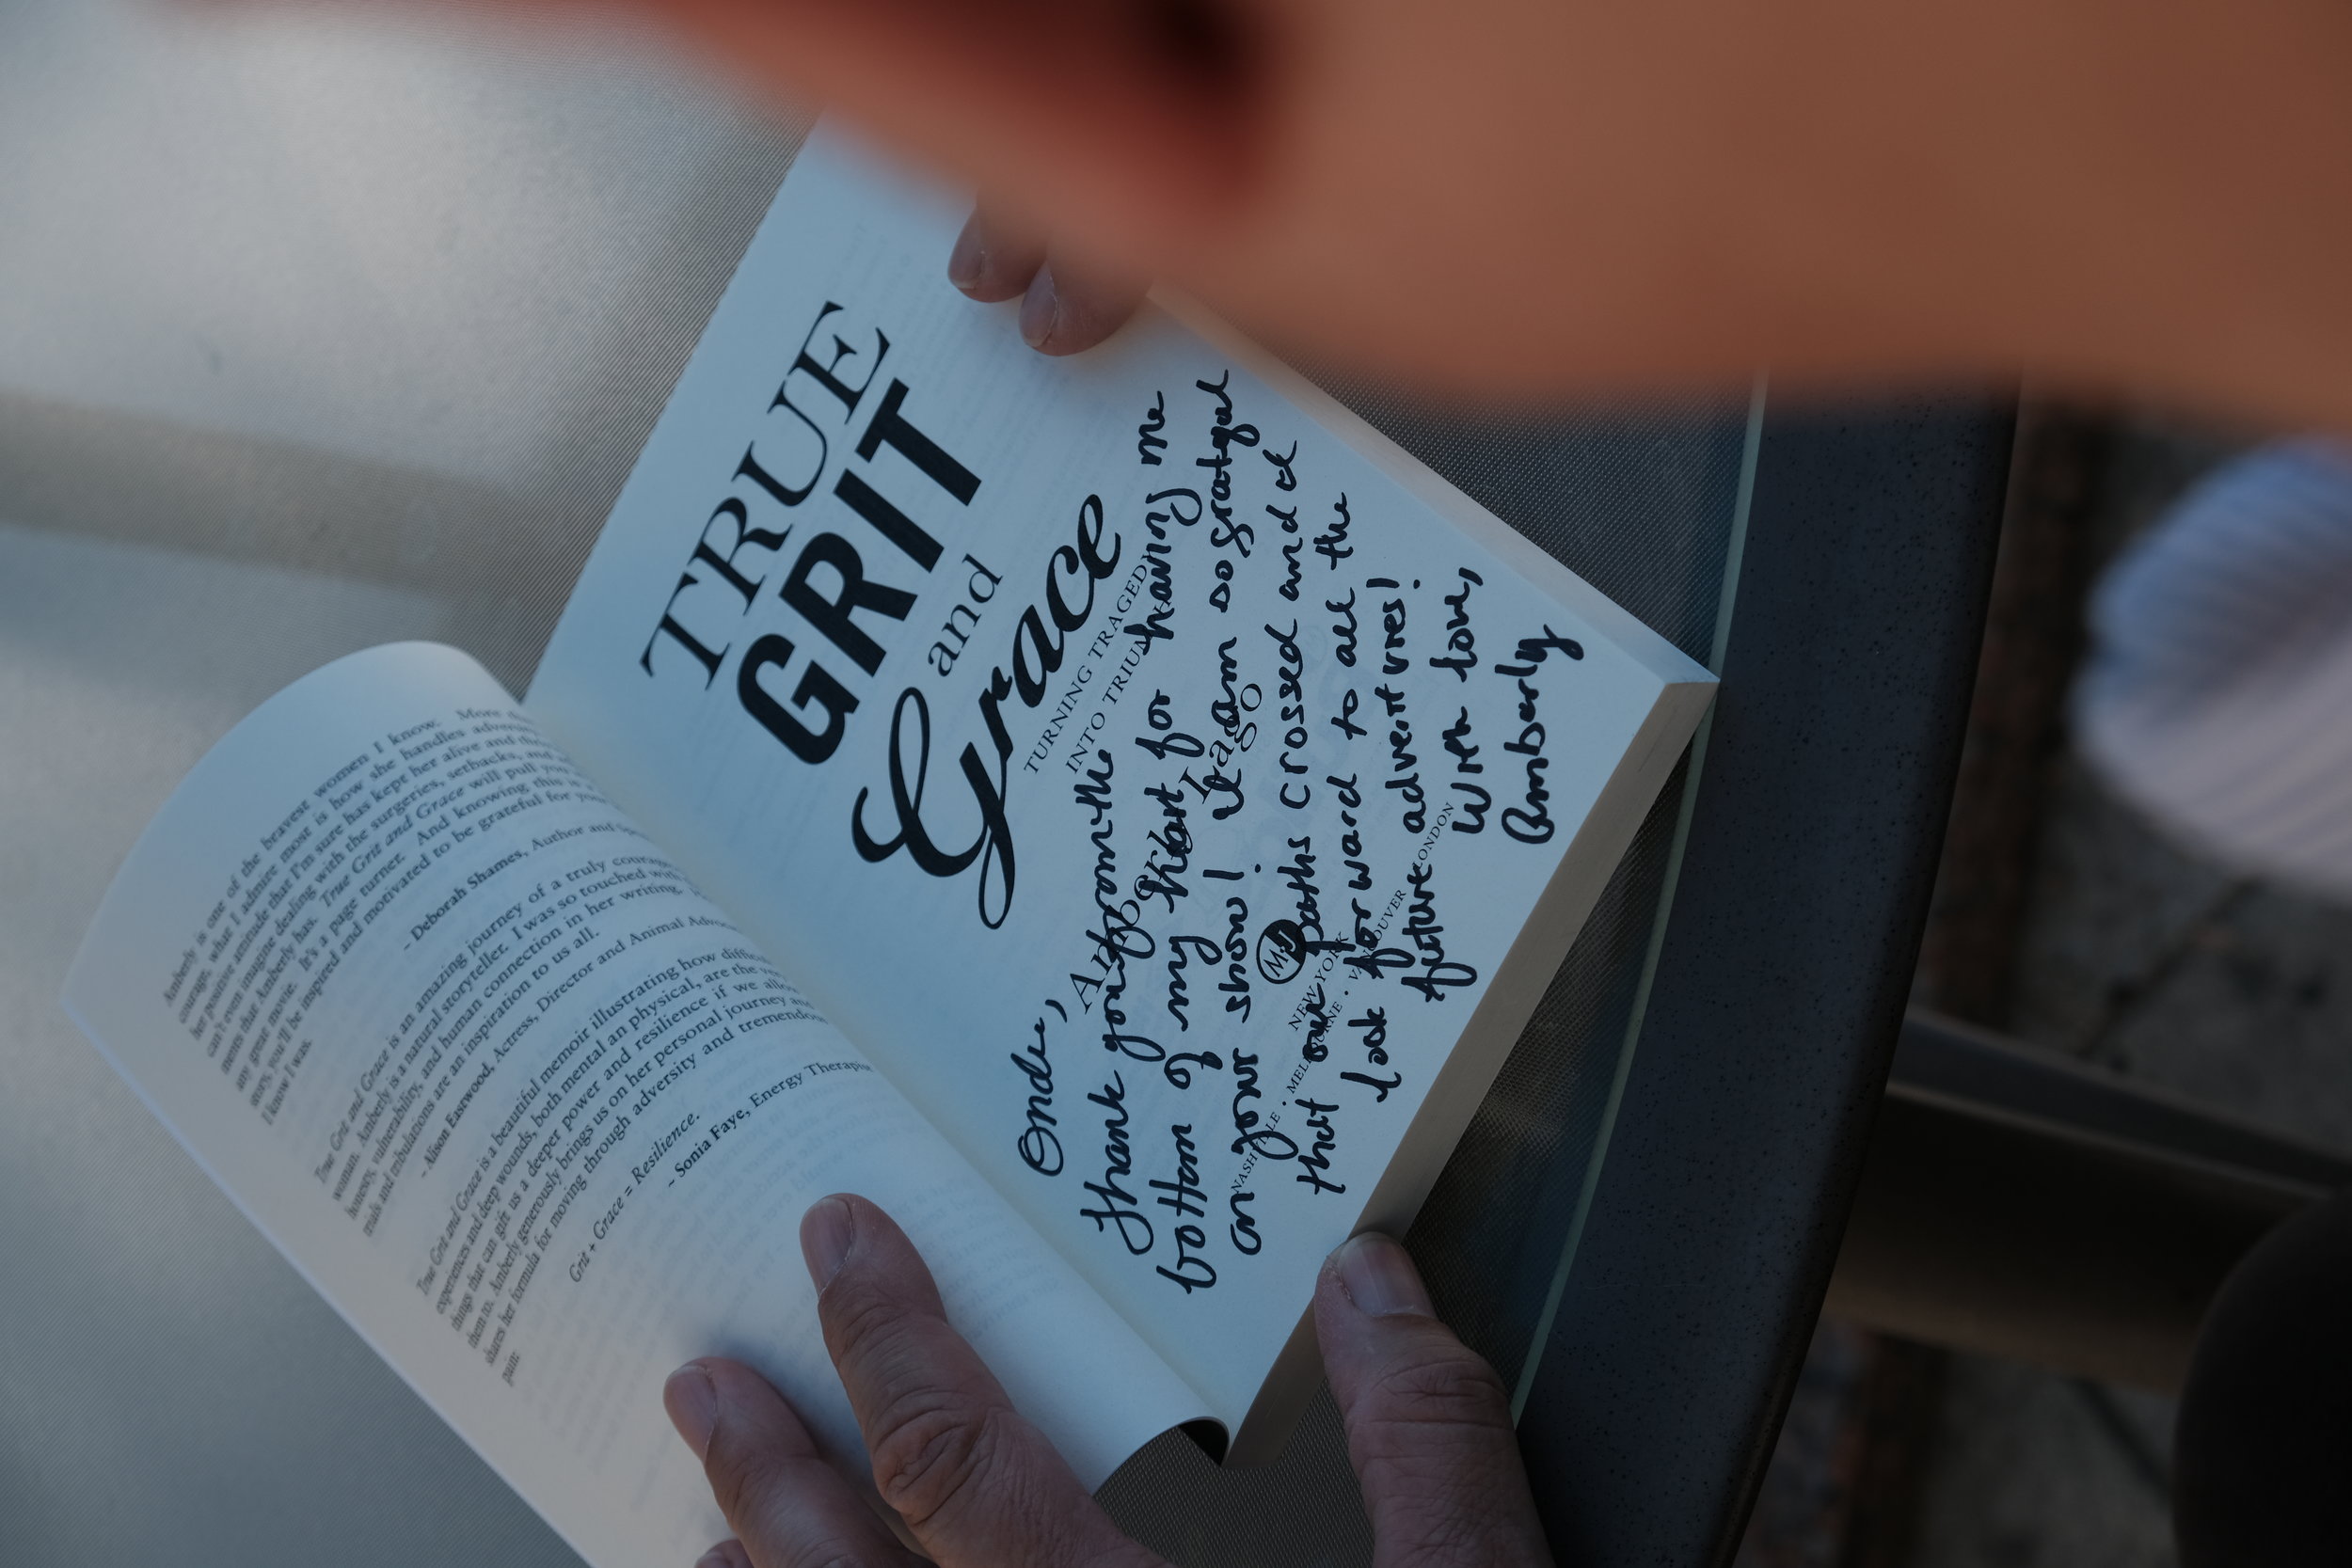 Amberly is one of the bravest women I know. More
courage, what I admire most is how she handles
her positive attitude that I'm sure has kept her alive and
can't even imagine dealing with the surgeries, setbacks, and
ments that Amberly has. True Grit and Grace will pull you
any great movie. It's a page turner. And knowing this is
story, you'll be inspired and motivated to be grateful for
I know I was.
– Deborah Shames, Author and
True Grit and Grace is an amazing journey of a truly
woman. Amberly is a natural storyteller. I was so touched
honesty, vulnerability, and human connection in her writing.
trials and tribulations are an inspiration to us all.
– Alison Eastwood, Actress, Director and Animal
True Grit and Grace is a beautiful memoir illustrating how
experiences and deep wounds, both mental an physical, are the
things that can gift us a deeper power and resilience if we
them to. Amberly generously brings us on her personal journey and
shares her formula for moving through adversity and
pain:
Grit + Grace = Resilience.
– Sonia Faye, Energy
TRUE
GRIT
and
Grace
TURNING TRAGEDY
INTO TRIUMPH
Thank you from the having me
bottom of my heart for
on your show! I am so grateful
that our paths crossed and
look forward to all the
future adventures!
With love,
Amberly
NEW YORK
LONDON